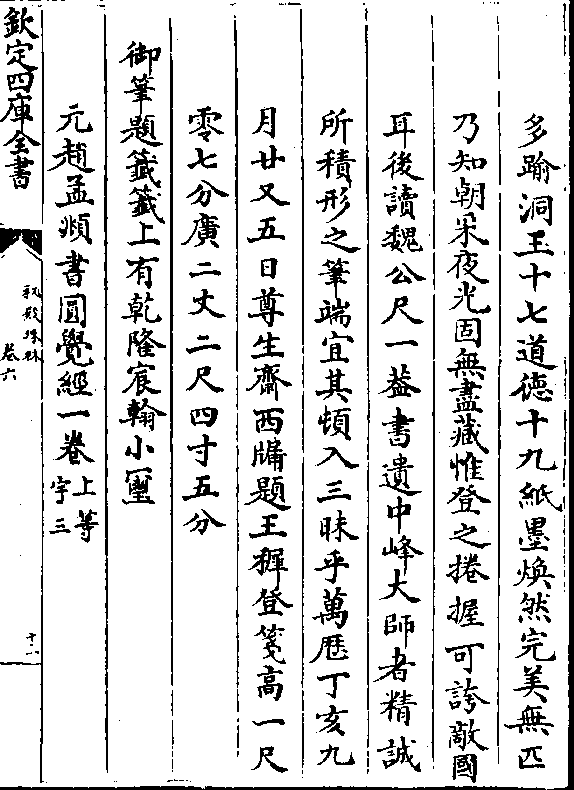 多踰洞玉十七道徳十九紙墨煥然完美無匹
乃知朝采夜光固無盡藏惟登之捲握可誇敵國
耳後讀魏公尺一葢書遺中峰大師者精誠
所積形之筆端宜其頓入三昧乎萬厯丁亥九
月廿又五日尊生齋西牖題王穉登箋髙一尺
零七分廣二丈二尺四寸五分
御筆題籤籤上有乾隆宸翰小璽
元趙孟頫書圓覺經一卷 上等
宇三
欽定四庫全書
秘殿珠林
卷六
十一